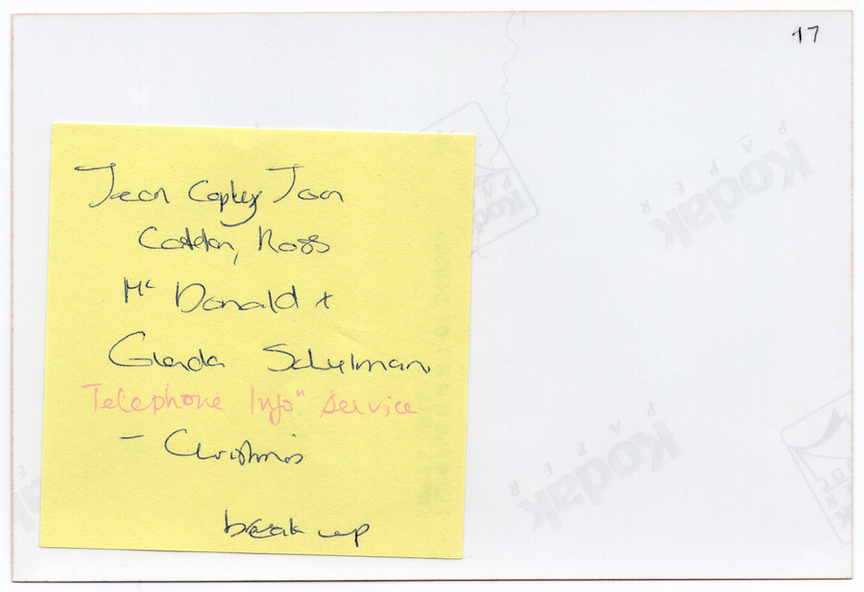 17
Jean Copley Joan
Cadden, Ross
Mc Donald +
Glenda Schulman
Telephone Info" service
- Christmas
break up
Kodak
PAPER
Kodak
PAPER
Kodak
PAPER